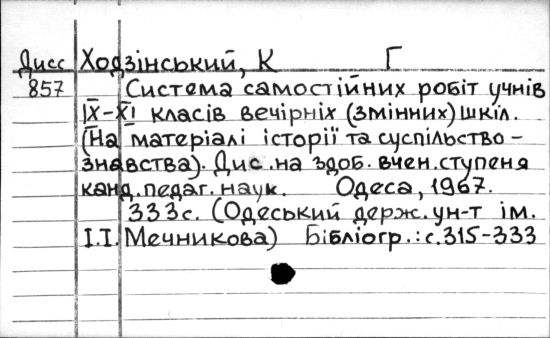 Дисс Ходзінський, К Г
857 Система самостійних робіт учнів
ІХ-ХІ класів вечірніх (змінних) шкіл.
(На матеріалі історії та суспільство-
знавства). Дис. на здоб. вчен. ступеня
канд. педаг. наук. Одеса, 1967.
333с. (Одеський держ. ун-т ім.
І.І. Мечникова) Бібліогр.: с. 315-333